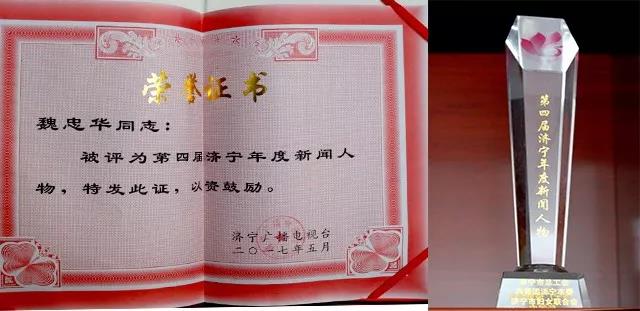 荣誉证书
魏忠华同志：
被评为第四届济宁年度新闻人
物，特发此证，以资鼓励。
济宁广播电视台
二〇一七年五月
第四届济宁年度新闻人物
济宁市总工会
共青团济宁市委
济宁市妇女联合会